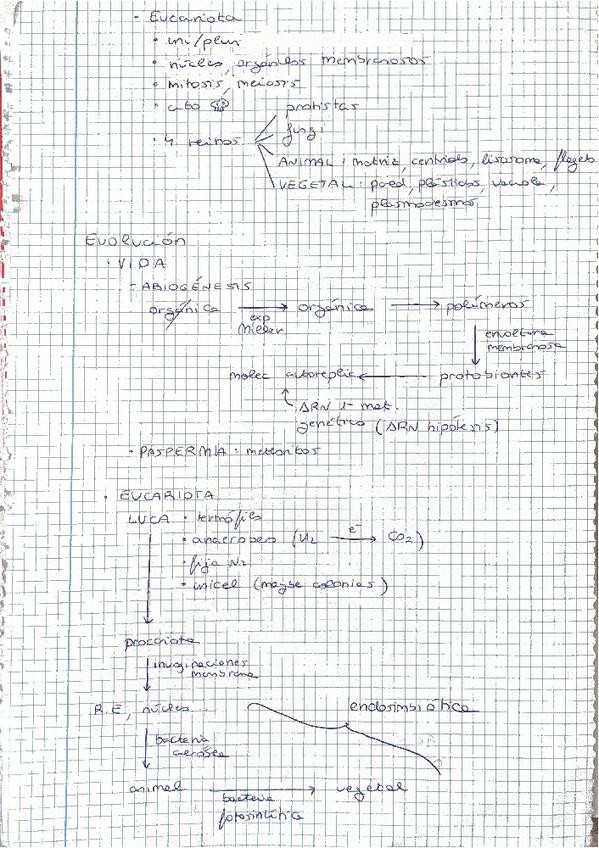 - Eucariota
• uni/pluri
• núcleo, orgánulos membranosos
• mitosis, meiosis
• cito
• 4 reinos
protistas
fungi
ANIMAL: matriz, centriolos, lisosoma, flagelo
VEGETAL: pared, plástidos, vacuola,
plasmodesmos
Evolución
• VIDA
- ABIOGÉNESIS
orgánica → orgánica → polímeros
exp
Miller
envoltura
membranosa
molec autoreplic ← protobiontes
ARN 1er mat.
genético (ARN hipótesis)
• PASPERMIA: meteoritos
• EUCARIOTA
LUCA • termófilo
• anaerobero (H2 e- → CO2)
• fija N2
• unicel (maybe colonias)
procariota
invaginaciones
membrana
R.E, núcleo...
endosimbiótica
bacteria
aerobia
animal → vegetal
bacteria
fotosintética